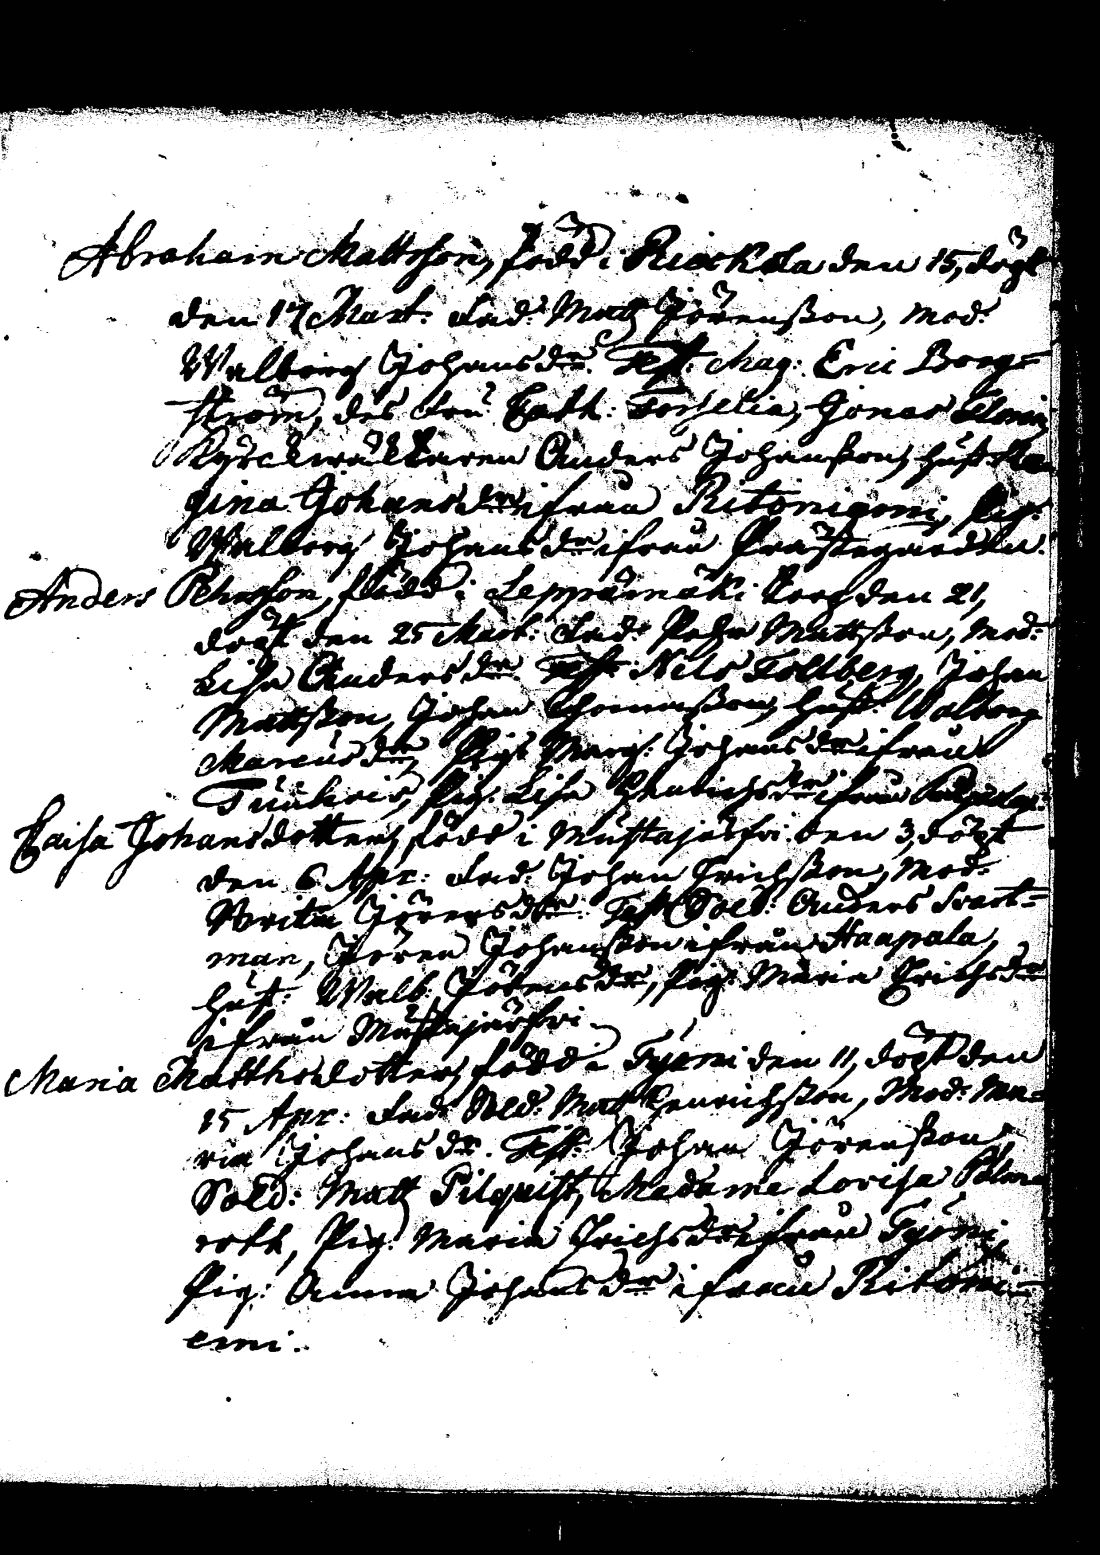 Abraham Mattsson, född i Riackala den 15, döpt
den 17 Mart: Fad: Matts Jörensson, Mod:
Walborg Johansdr. Test: Mag: Eric Borg=
ström, des Fru Cath: Forselia, Jonas
Kyrckwäktaren Anders Johansson, hust:
gina Johansdr ifrån Ritoniemi, Pig:
Walborg Johansdr ifrån Prästegården.
Anders Pehrsson, född i Leppämäki torp den 21,
döpt den 25 Mart: Fad: Pehr Mattsson, Mod:
Lisa Andersdr Test: Nils Tollberg, Johan
Mattsson, Johan Thomasson, hust: Walborg
Marcusdr, Pig: Marg: Johansdr ifrån
Pig: Lisa Henrichsdr ifrån
Caisa Johansdotter, född i Mustajärfvi den 3, döpt
den 6 Apr: Fad: Johan Erichsson, Mod:
Brita Jörensdr. Test: Sold: Anders Svart=
man, Jören Johansson ifrån Haapala,
hust: Walb: Jörensdr, Pig: Maria Erichsdr
ifrån Mustajärfvi.
Maria Matthsdotter, född i Työni den 11, döpt den
15 Apr: Fad: Sold: Matts Henrichsson, Mod: Ma=
ria Johansdr. Test: Johan Jörensson,
Sold: Matt Pilquist, Madame Lovisa
roth, Pig: Maria Erichsdr ifrån Työni,
Pig: Anna Johansdr ifrån Ritoni=
emi.